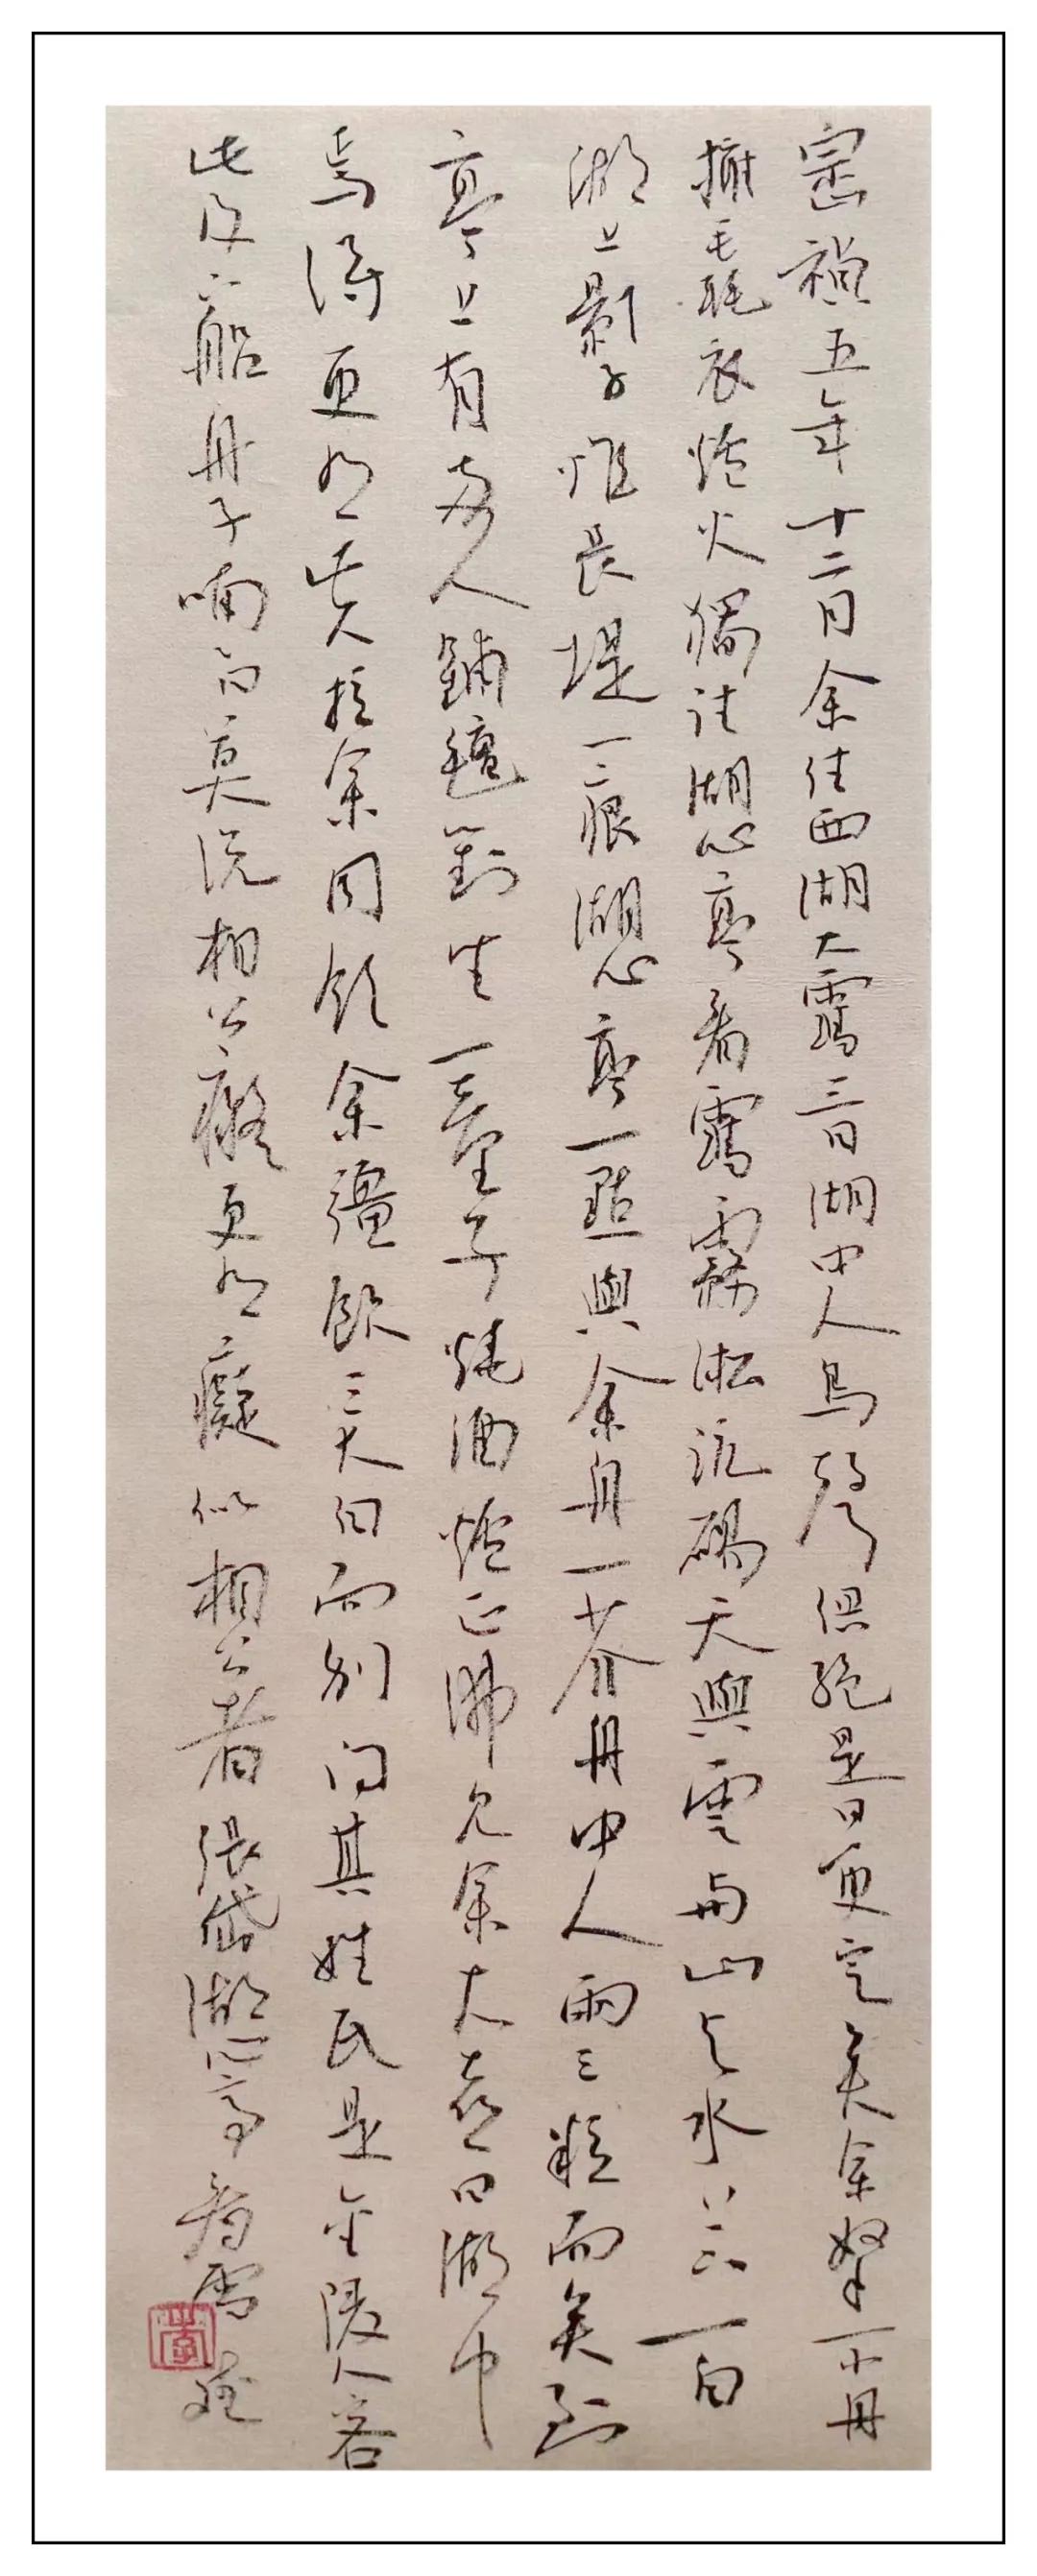 崇禎五年十二月余住西湖大雪三日湖中人鳥聲俱絕是日更定矣余拏一小舟
擁毳衣爐火獨往湖心亭看雪霧淞沆碭天與雲與山與水上下一白
湖上影子惟長堤一痕湖心亭一點與余舟一芥舟中人兩三粒而矣到
亭上有兩人鋪氈對坐一童子燒酒爐正沸見余大喜曰湖中
焉得更有此人拉余同飲余彊飲三大白而別問其姓氏是金陵人客
此及下船舟子喃曰莫說相公癡更有癡似相公者張岱湖心亭看雪